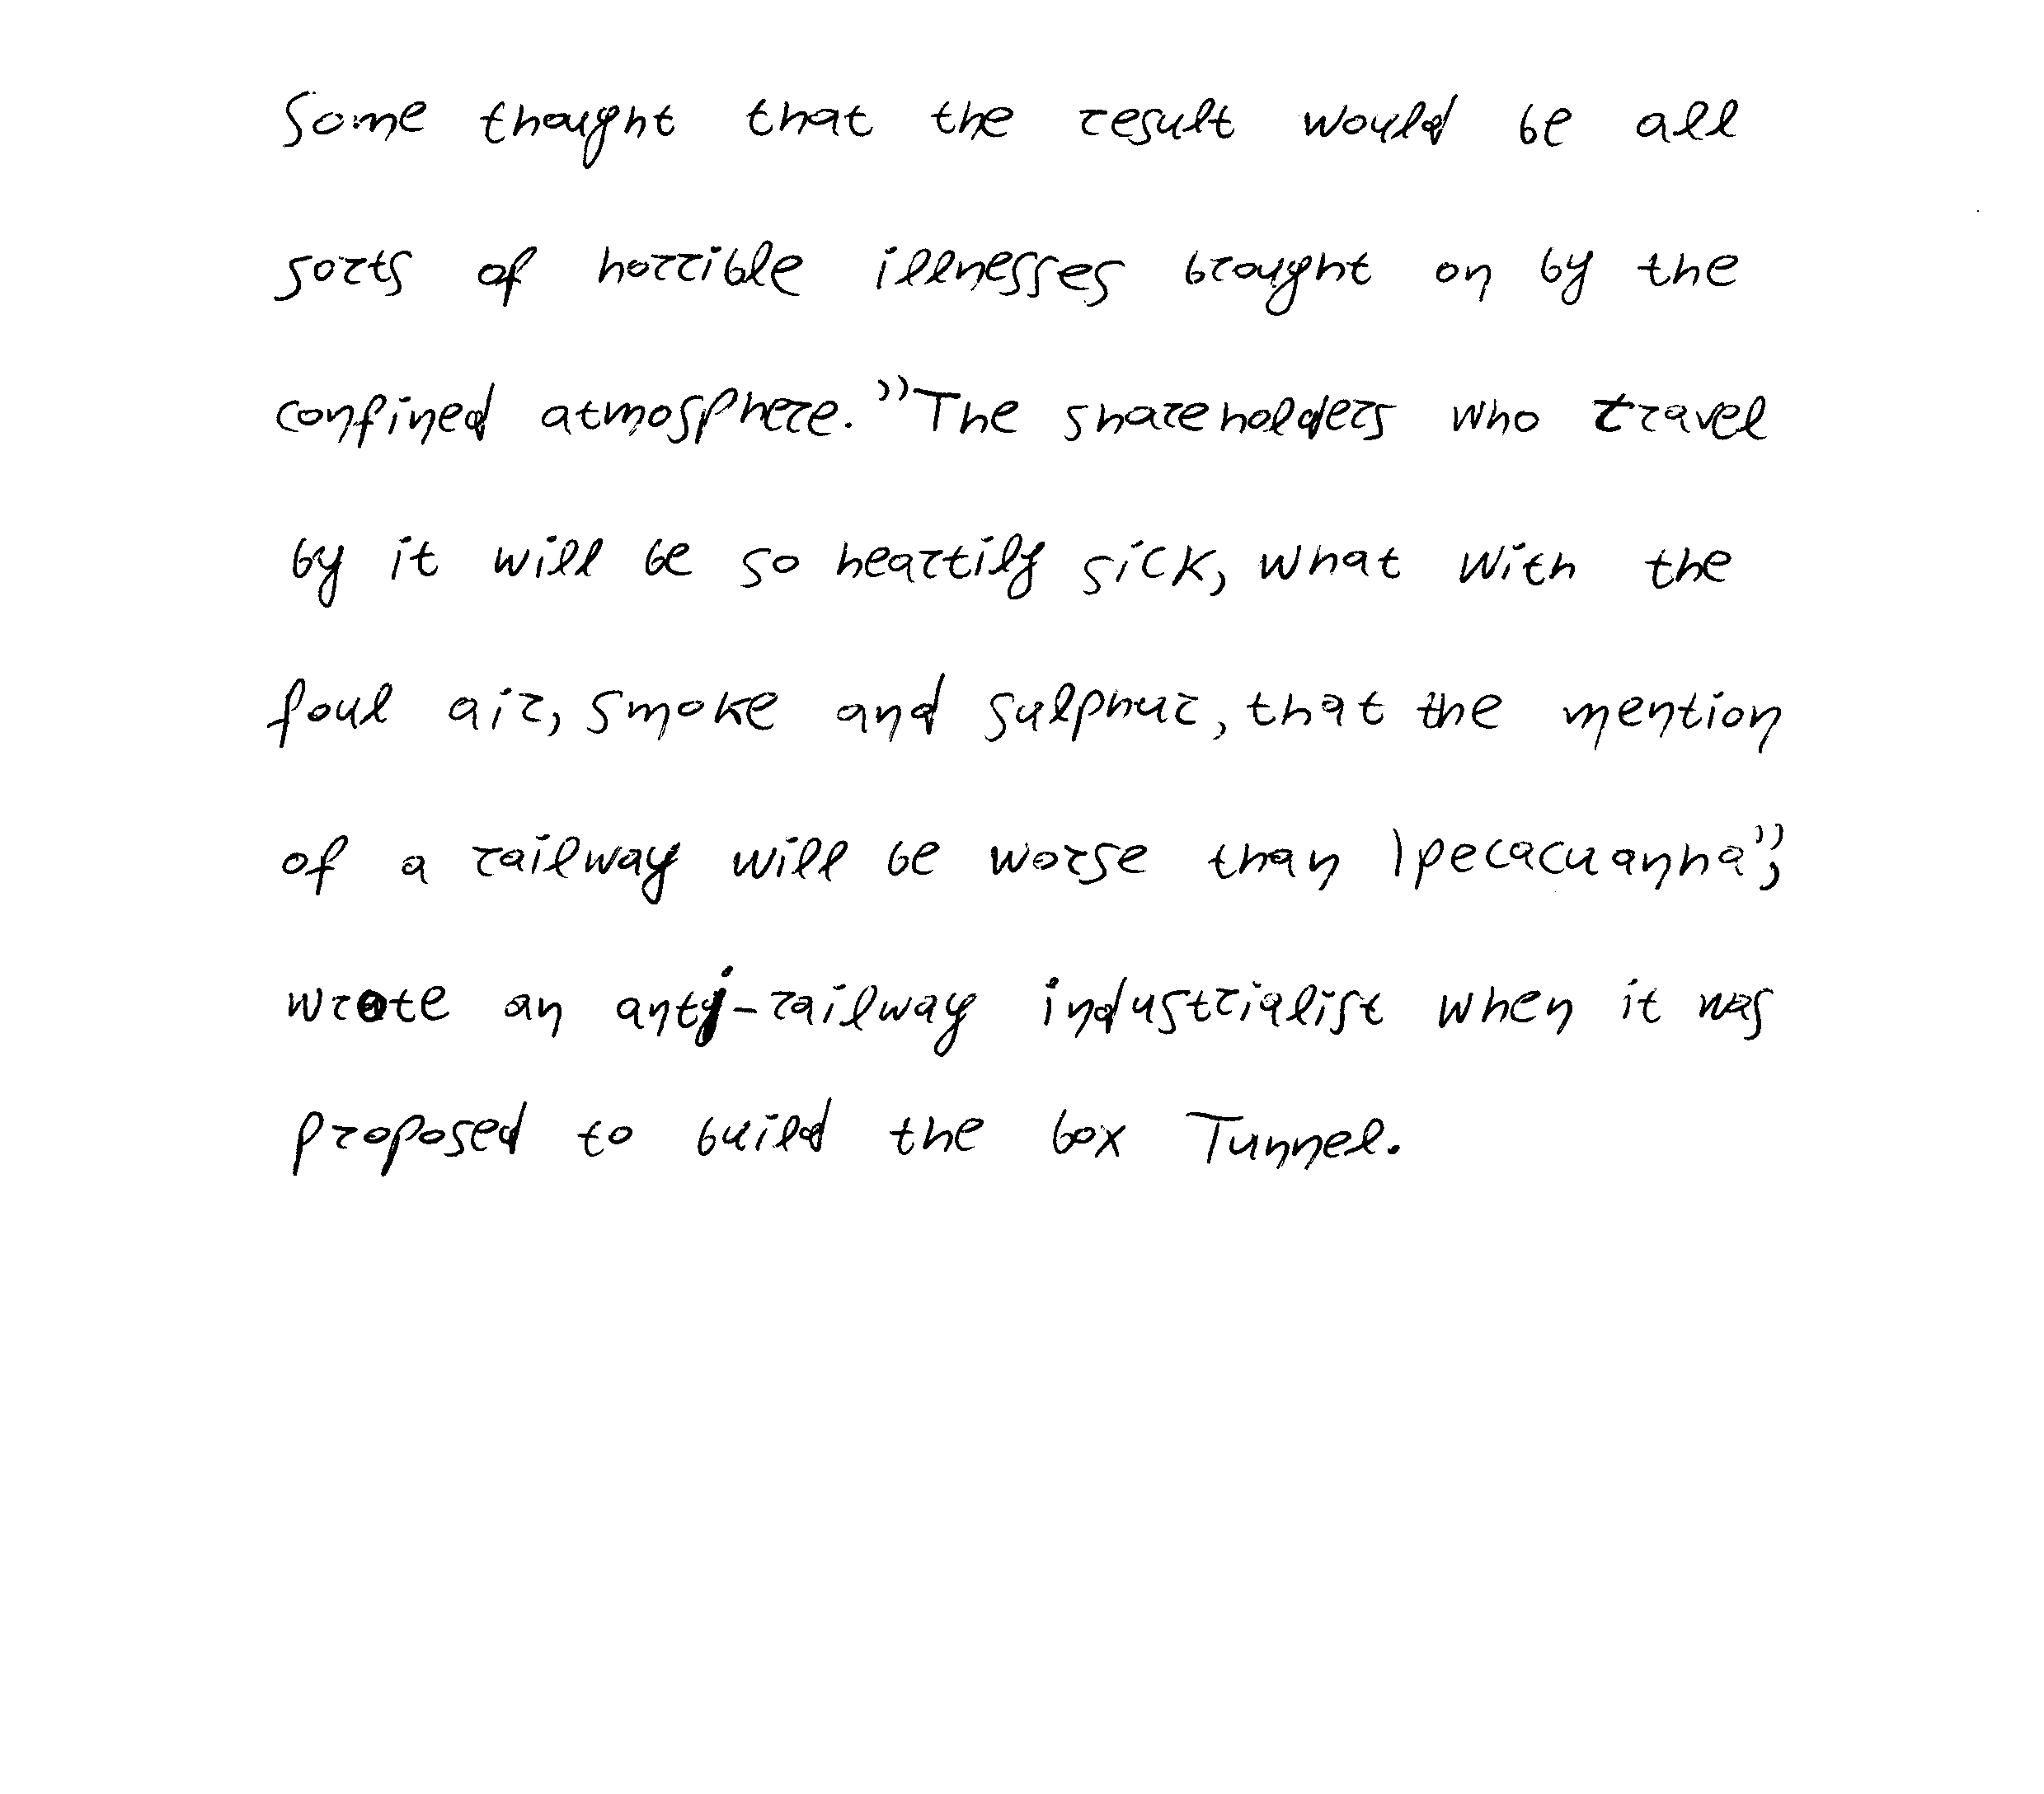 Some thought that the result would be all
sorts of horrible illnesses brought on by the
confined atmosphere. "The shareholders who travel
by it will be so heartily sick, what with the
foul air, smoke and sulphur, that the mention
of a railway will be worse than Ipecacuanha",
wrote an anti-railway industrialist when it was
proposed to build the box Tunnel.